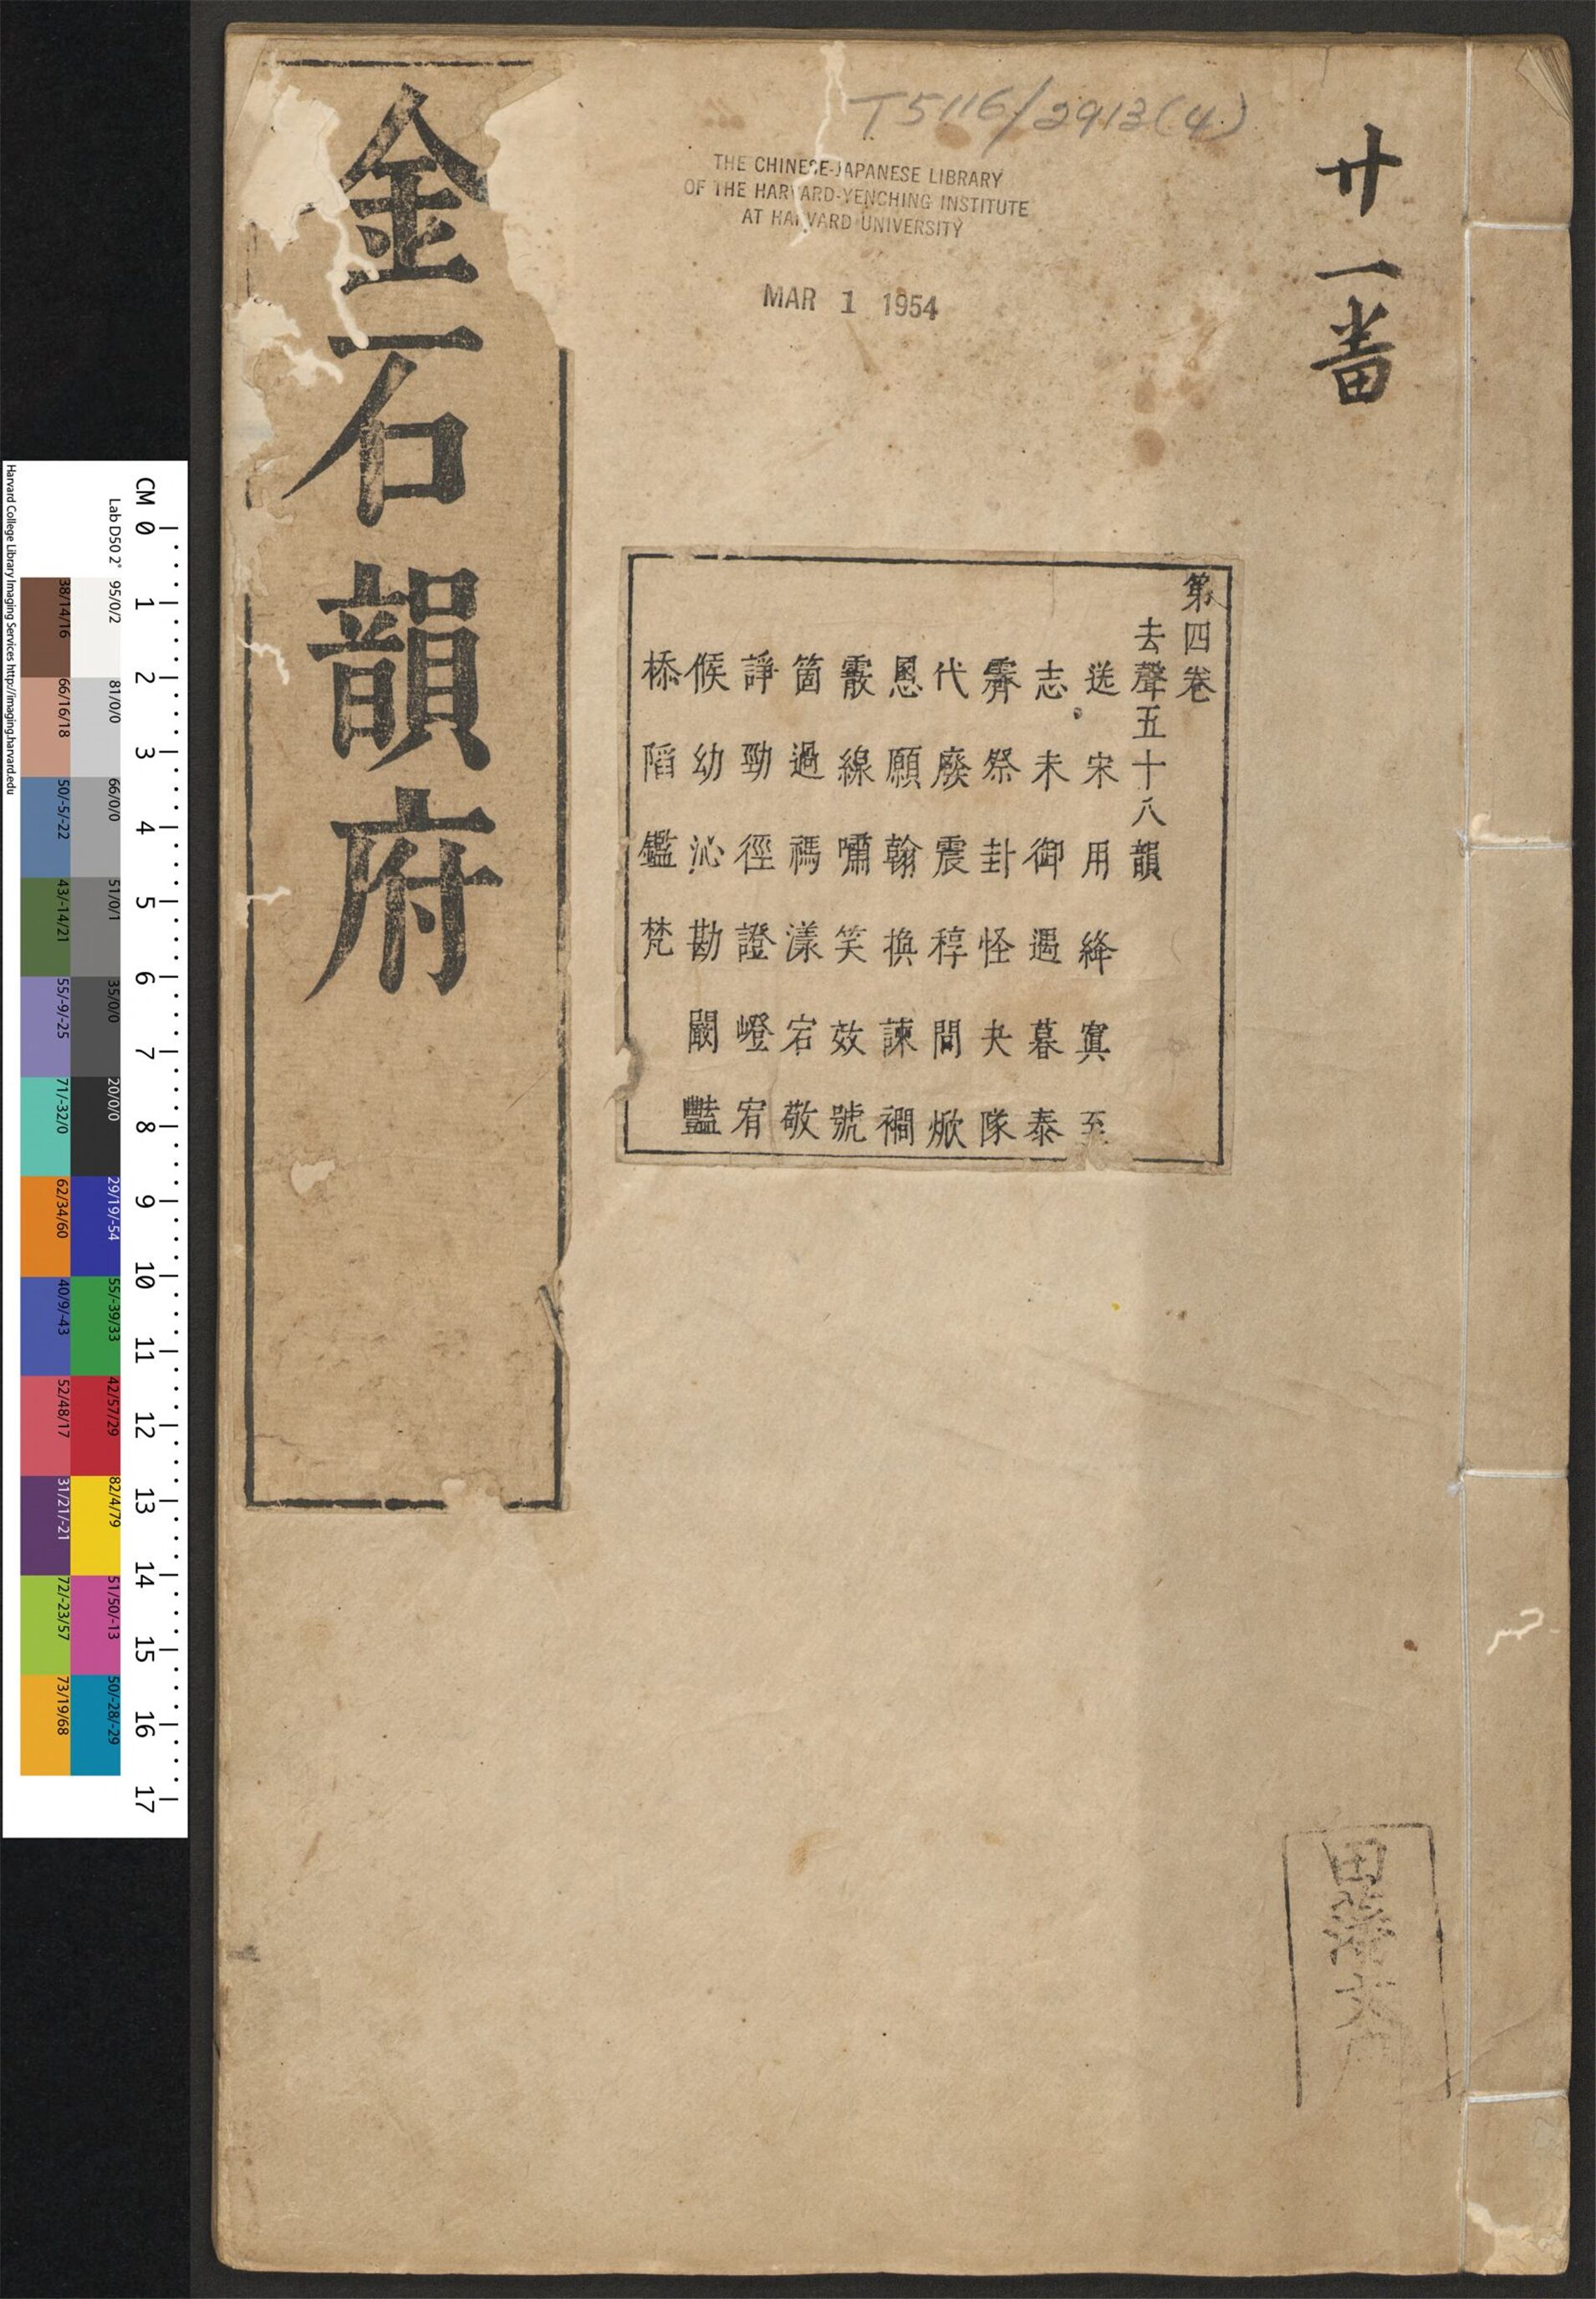 金石韻府
T5116/2913(4)
THE CHINESE-JAPANESE LIBRARY
OF THE HARVARD-YENCHING INSTITUTE
AT HARVARD UNIVERSITY
MAR 1 1954
廿一畨
第四卷
去聲五十八韻
送宋用絳寘至
志未御遇暮泰
霽祭卦怪夬隊
代廢震稕問焮
恩願翰換諫襉
霰線嘯笑效號
箇過禡漾宕敬
諍勁徑證嶝宥
候幼沁勘闞豔
㮇陷鑑梵
田藩文
CM 0 1 2 3 4 5 6 7 8 9 10 11 12 13 14 15 16 17
Lab D50 2°
95/0/2
81/0/0
66/0/0
51/0/1
35/0/0
20/0/0
29/19/-54
55/-39/33
42/57/29
82/4/79
51/50/-13
50/-28/-29
38/14/16
66/16/18
50/-5/-22
43/-14/21
55/-9/-25
71/-32/0
62/34/60
40/9/-43
52/48/17
31/21/-21
72/-23/57
73/19/68
Harvard College Library Imaging Services http://imaging.harvard.edu